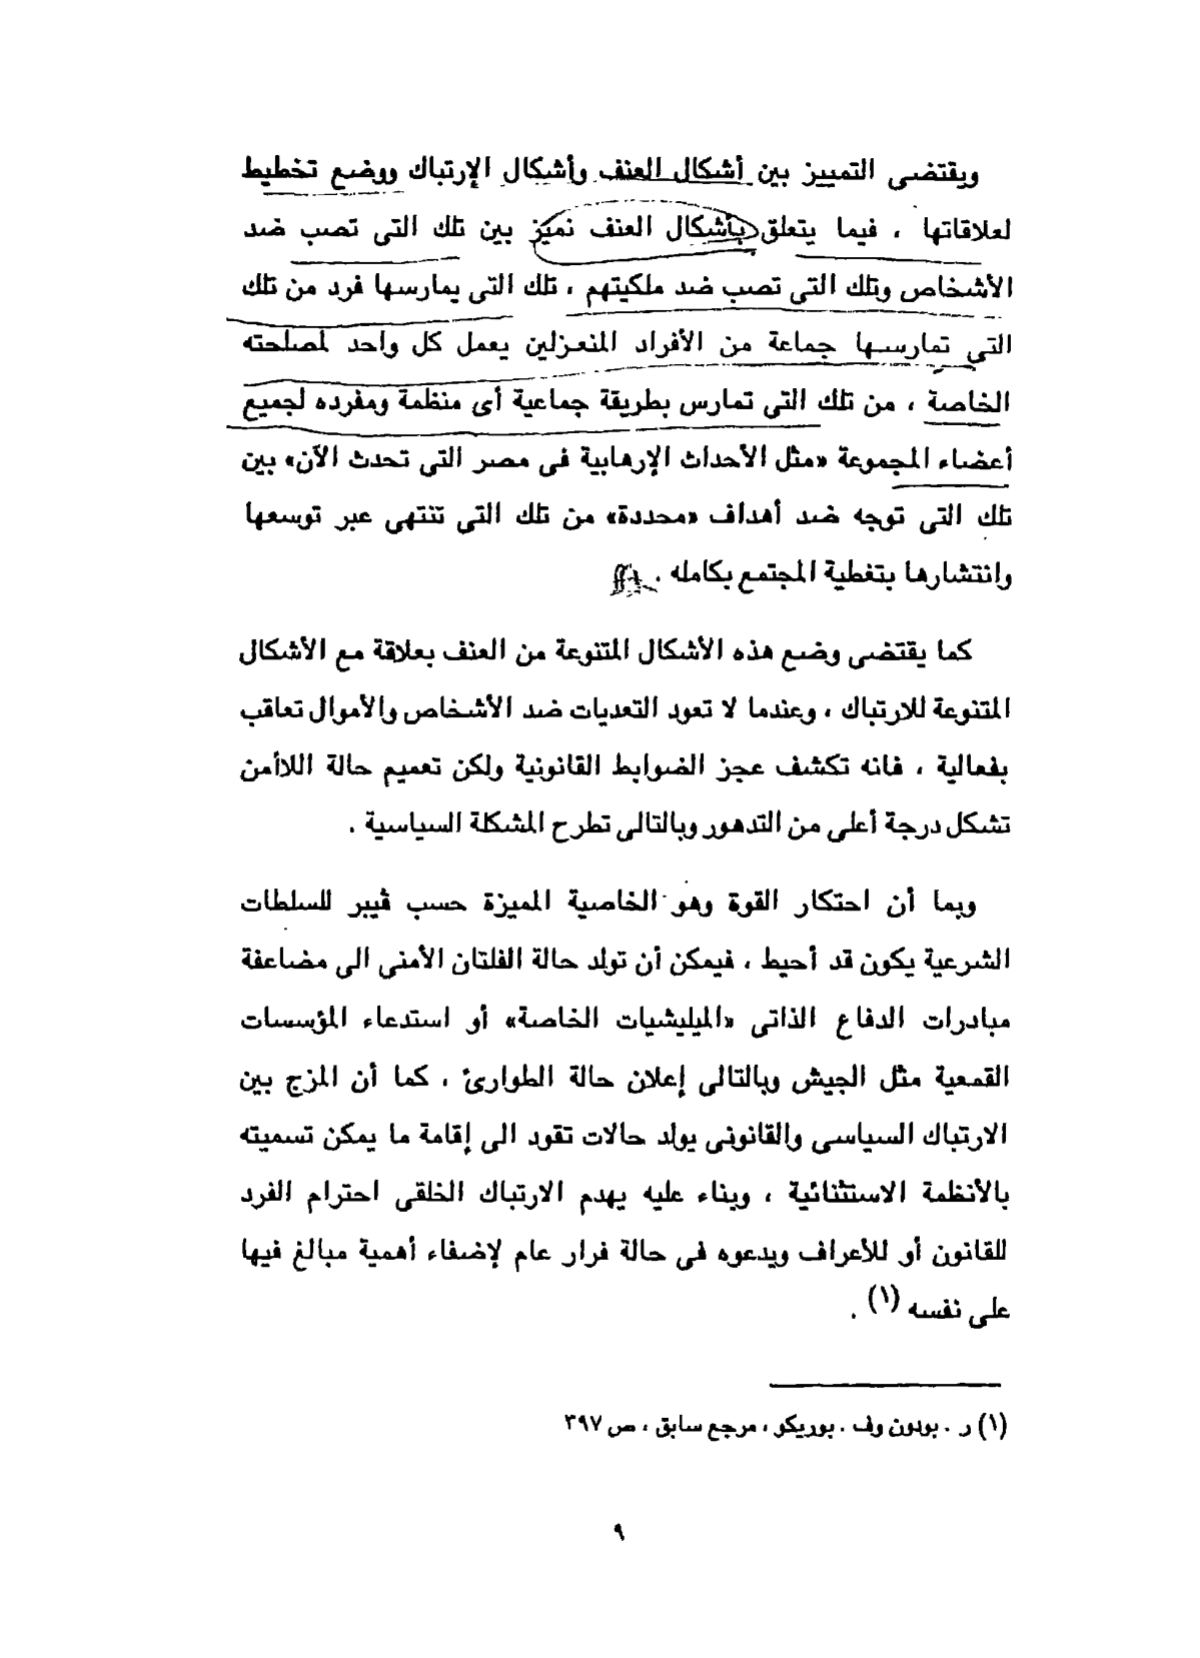 ويقتضى التمييز بين أشكال العنف وأشكال الإرتباك ووضع تخطيط
لعلاقاتها ، فيما يتعلق بأشكال العنف نميز بين تلك التى تصب ضد
الأشخاص وتلك التى تصب ضد ملكيتهم ، تلك التى يمارسها فرد من تلك
التي تمارسها جماعة من الأفراد المنعزلين يعمل كل واحد لمصلحته
الخاصة ، من تلك التى تمارس بطريقة جماعية أى منظمة ومفرده لجميع
أعضاء المجموعة «مثل الأحداث الإرهابية فى مصر التى تحدث الآن» بين
تلك التى توجه ضد أهداف «محددة» من تلك التى تنتهى عبر توسعها
وانتشارها بتغطية المجتمع بكامله .
كما يقتضى وضع هذه الأشكال المتنوعة من العنف بعلاقة مع الأشكال
المتنوعة للارتباك ، وعندما لا تعود التعديات ضد الأشخاص والأموال تعاقب
بفعالية ، فانه تكشف عجز الضوابط القانونية ولكن تعميم حالة اللاأمن
تشكل درجة أعلى من التدهور وبالتالى تطرح المشكلة السياسية .
وبما أن احتكار القوة وهو الخاصية المميزة حسب ڤيبر للسلطات
الشرعية يكون قد أحيط ، فيمكن أن تولد حالة الفلتان الأمنى الى مضاعفة
مبادرات الدفاع الذاتى «الميليشيات الخاصة» أو استدعاء المؤسسات
القمعية مثل الجيش وبالتالى إعلان حالة الطوارئ ، كما أن المزج بين
الارتباك السياسى والقانونى يولد حالات تقود الى إقامة ما يمكن تسميته
بالأنظمة الاستثنائية ، وبناء عليه يهدم الارتباك الخلقى احترام الفرد
للقانون أو للأعراف ويدعوه فى حالة فرار عام لإضفاء أهمية مبالغ فيها
على نفسه (١) .
(١) ر . بودون وف . بوريكو ، مرجع سابق ، ص ٣٩٧
٩